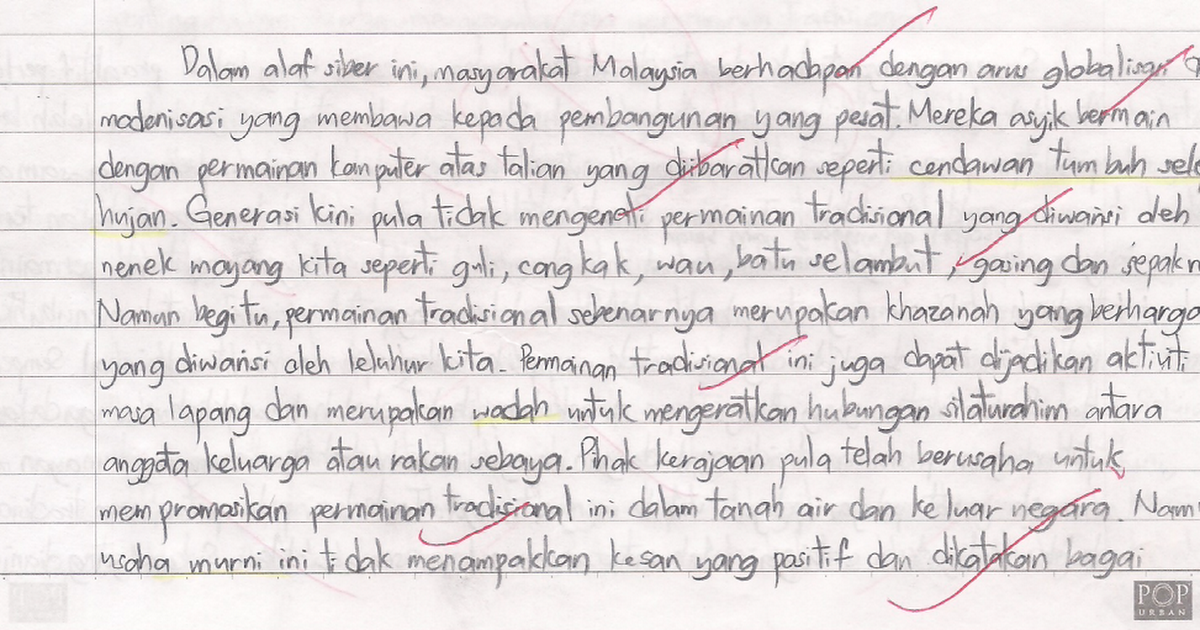 Dalam alaf siber ini, masyarakat Malaysia berhadapan dengan arus globalisasi
madenisasi yang membawa kepada pembangunan yang pesat. Mereka asyik bermain
dengan permainan komputer atas talian yang diibaratkan seperti cendawan tumbuh sele
hujan. Generasi kini pula tidak mengenali permainan tradisional yang diwarisi oleh
nenek moyang kita seperti guli, congkak, wau, batu selambut, gasing dan sepak r
Namun begitu, permainan tradisional sebenarnya merupakan khazanah yang berharga
yang diwarisi oleh leluhur kita. Permainan tradisional ini juga dapat dijadikan aktiviti
masa lapang dan merupakan wadah untuk mengeratkan hubungan silaturahim antara
anggota keluarga atau rakan sebaya. Pihak kerajaan pula telah berusaha untuk
mempromosikan permainan tradisional ini dalam tanah air dan ke luar negara. Nam
usaha murni ini tidak menampakkan kesan yang positif dan dikatakan bagai
POP
URBAN